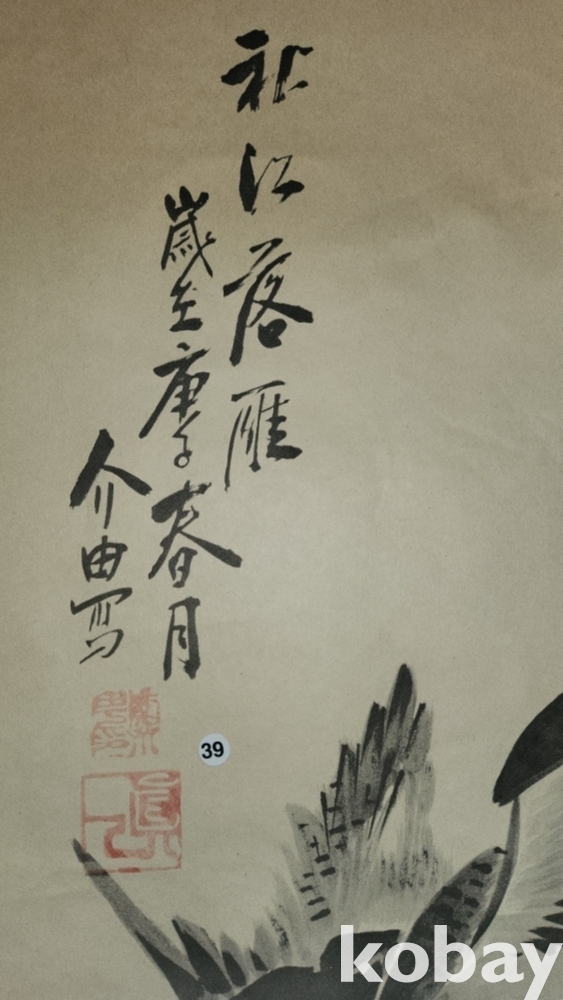 秋江落雁
歲在庚子春月
介由写
39
kobay